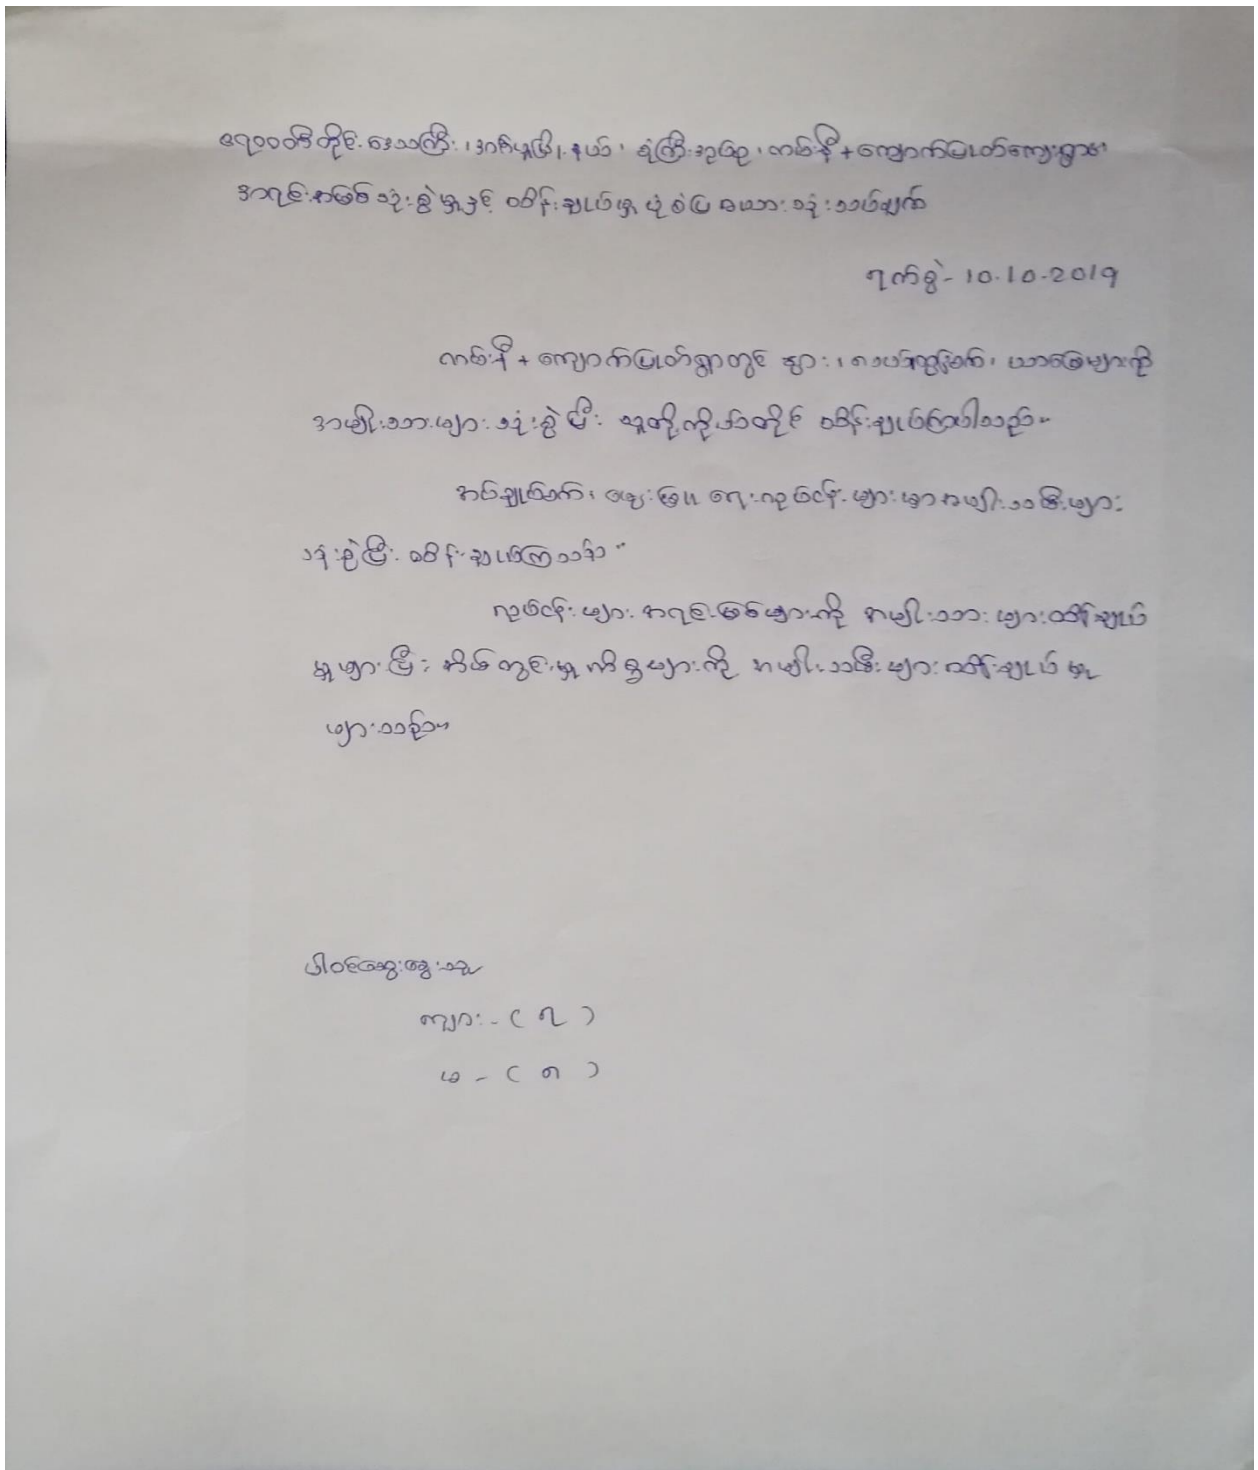 ဧရာဝတီတိုင်းဒေသကြီး၊ ဒေးဒရဲမြို့နယ်၊ ရုံကြီးအုပ်စု၊ ကမ်းနီ + ကျောက်ပြုတ်ကျေးရွာ၏
အရင်းအမြစ်သုံးစွဲမှုနှင့် ထိန်းချုပ်မှု ပုံစံပြ ဇယားသုံးသပ်ချက်
ရက်စွဲ - 10.10.2019
ကမ်းနီ + ကျောက်ပြုတ်ရွာတွင် နွား၊ ယာမြေများကို
အမျိုးသားများ သုံးစွဲပြီး သူတို့ကိုယ်တိုင် ထိန်းချုပ်ကြပါသည်။
အပ်ချုပ်စက်၊ မွေးမြူရေးလုပ်ငန်းများမှာ အမျိုးသမီးများ
သုံးစွဲပြီး ထိန်းချုပ်ကြသည်။
လုပ်ငန်းများ အရင်းအမြစ်များကို အမျိုးသားများ ထိန်းချုပ်
မှုများပြီး အိမ်တွင်းမှုကိစ္စများကို အမျိုးသမီးများ ထိန်းချုပ်မှု
များသည်။
ပါဝင်ဆွေးနွေးသူ
ကျား - ( ၇ )
မ - ( ၈ )